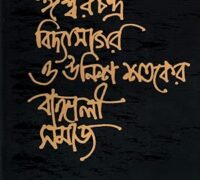 ঈশ্বরচন্দ্র
বিদ্যাসাগর
ও উনিশ শতকের
বাঙ্গালী
সমাজ